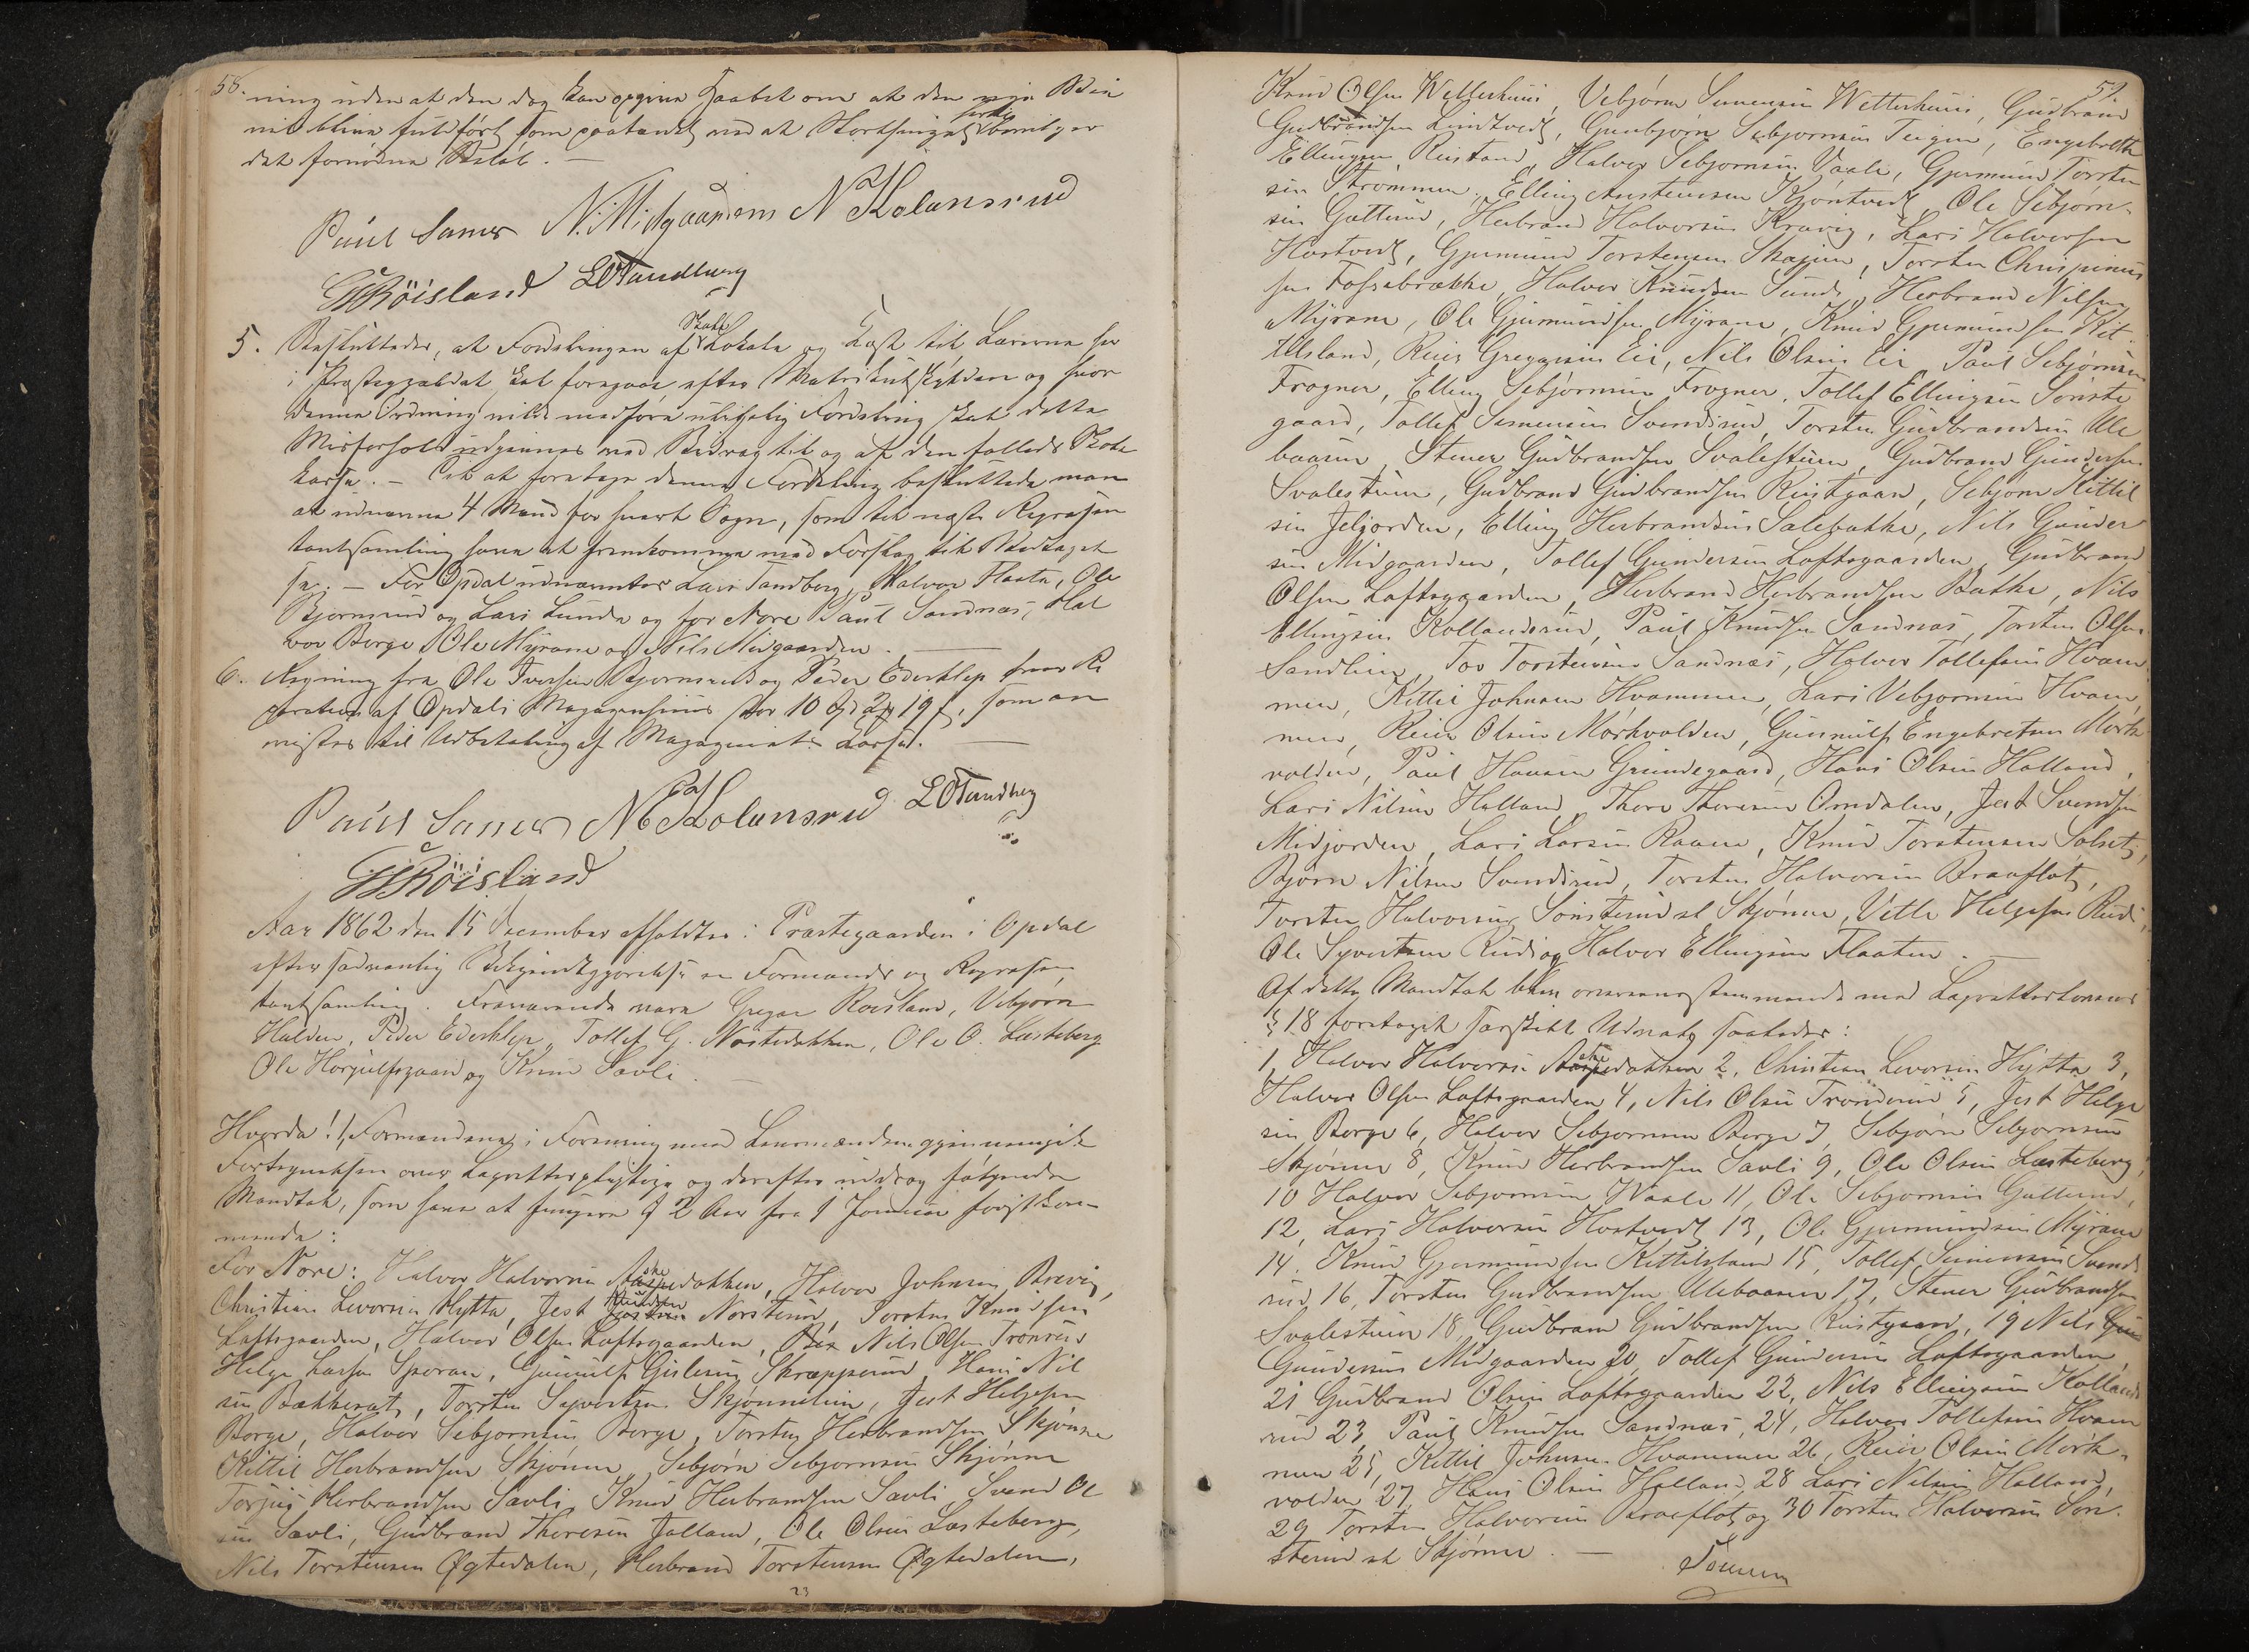 58.
ning uden at den dog kan opgive Haabet om at den nye Vei
vil blive fuldført som paatænkt ved at Storthinget bevilger
det fornødne Beløb. —
Paul Sanes N. Midgaarden N Kolansrud
G Röisland L O Tandberg
5. Besluttedes, at Fordelingen af Skole Lokale og Kost til Lærerne her
i Præstegjældet skal foregaae efter Matrikulskylden og hvor
denne Ordning vilde medføre ulighed Fordeling skal dette
Misforhold udjevnes ved Bidrag til og af den fælleds Skole
kasse. — Til at foretage denne Fordeling besluttede man
at udnævne 4 Mænd for hvert Sogn, som til næste Repræsen
tantsamling have at fremkomme med Forslag til Vedtagel
se. — For Opdal udnævntes Lars Tandberg, Halvor Flaata, Ole
Bjornsrud og Lars Lunde og for Nore Paul Sandnæs, Hal
vor Borge, Ole Myrane og Nils Midgaarden. —
6. Regning fra Ole Iversen Bjornsrud og Peder Ederklep for Re
paration af Opdals Magazinhuus stor 10 Spd 2 19 s, som an
vistes til Udbetaling af Magazinets Kasse. —
Paul Sanes N Kolansrud L O Tandberg
G Röisland
Aar 1862 den 15 December afholdtes i Præstegaarden i Opdal
efter sædvanlig Bekjendtgjørelse en Formands og Repræsen
tantsamling. Fraværende vare Gregar Roisland, Vebjørn
Halden, Peder Ederklep, Tollef G. Nostedakken, Ole O. Lasteberg
Ole Horgulfsgaard og Knud Savli. —
Hvorda: 1, Formændene i Forening med Lensmanden gjennemgik
Fortegnelsen over Lagrettespligtige og derefter udtog følgende
Mandtal, som have at fungere i 2 Aar fra 1 Januar førstkom-
mende:
For Nore: Halvor Halvorsen Aasedokken, Halvor Johnsen Brevig,
Christian Levorsen Hytta, Jest Knudsen Norsterud, Torsten Knudsen
Loftsgaarden, Halvor Olsen Loftsgaarden, Nils Olsen Tronrud
Helge Larsen Sporan, Gunulf Gislesen Skrapperud, Hans Nil
sen Bækkeseth, Torsten Syvertsen Skjønnelien, Jest Helgesen
Borge, Halvor Sebjornsen Borge, Torsten Herbrandsen Skjønne
Kittil Herbrandsen Skjønne, Sebjørn Sebjornsen Skjønne
Torjus Herbrandsen Savli, Knud Herbrandsen Savli, Svend Ol
sen Savli, Gudbrand Thoresen Jalland, Ole Olsen Lasteberg,
Nils Torstensen Øgtedalen, Herbrand Torstensen Øgtedalen,
23
59.
Knud Olsen Wetterhuus, Vebjørn Simensen Wetterhuus, Gudbrand
Gudbrandsen Lindtvedt, Gunbjørn Sebjornsen Teigen, Engebreth
Ellingsen Rustand, Halvor Sebjornsen Vaale, Gjermund Torsten
sen Strømmen, Elling Austensen Kjøntvedt, Ole Sebjørn-
sen Gullund, Herbrand Halvorsen Kravig, Lars Halvorsen
Hostvedt, Gjermund Torstensen Skajem, Torsten Chrispinus
sen Fossebrække, Halvor Knudsen Sunde, Herbrand Nilsen
Myrane, Ole Gjermundsen Myrane, Knud Gjermundsen Kit-
tilsland, Reier Gregersen Eie, Nils Olsen Eie, Paul Sebjørnsen
Frogner, Elling Sebjørnsen Frogner, Tollef Ellingsen Sønste
gaard, Tollef Simensen Svendsrud, Torsten Gudbrandsen Ule
baasen, Stener Gudbrandsen Svalestuen, Gudbrand Gundersen
Svalestuen, Gudbrand Gudbrandsen Rustgaard, Sebjorn Kittil
sen Jeljorden, Elling Herbrandsen Salebakke, Nils Gunder
sen Midgaarden, Tollef Gundersen Loftsgaarden, Gudbrand
Olsen Loftsgaarden, Herbrand Herbrandsen Bakke, Nils
Ellingsen Kollandsrud, Paul Knudsen Sandnæs, Torsten Olsen
Sandlien, Tov Torstensen Sandnæs, Halvor Tollefsen Hvam
men, Kittil Johnsen Hvammen, Lars Vebjornsen Hvam
men, Reier Olsen Mørkvolden, Gunnulf Engebretsen Mørk
volden, Paul Hansen Grundegaard, Hans Olsen Holland,
Lars Nilsen Holland, Thore Thoresen Omdalen, Jest Svendsen
Midjorden, Lars Larsen Raaen, Knud Torstensen Solset,
Bjørn Nilsen Svendsrud, Torsten Halvorsen Braaflot,
Torsten Halvorsen Sønsterud st Skjønne, Vetle Helgesen Rudi,
Ole Syvertsen Rudi og Halvor Ellingsen Flaaten. —
Af dette Mandtal blev overeensstemmende med Lagrettelovens
§ 18 foretaget særskilt Udvalg saaledes:
1, Halvor Halvorsen Aasedokken 2, Christian Levorsen Hytta 3,
Halvor Olsen Loftsgaarden 4, Nils Olsen Tronderud 5, Jest Helge
sen Borge 6, Halvor Sebjornsen Borge 7, Sebjørn Sebjornsen
Skjønne 8, Knud Herbrandsen Savli 9, Ole Olsen Lasteberg,
10 Halvor Sebjornsen Waale 11, Ole Sebjornsen Gullund,
12, Lars Halvorsen Hostvedt 13, Ole Gjermundsen Myrane
14. Knud Gjermundsen Kittilsland 15, Tollef Simensen Svends
rud 16, Torsten Gudbrandsen Ulebaasen 17, Stener Gudbrandsen
Svalestuen 18, Gudbrand Gudbrandsen Rustgaard, 19 Nils
Gundersen Midgaarden 20, Tollef Gundersen Loftsgaarden,
21 Gudbrand Olsen Loftsgaarden 22, Nils Ellingsen Kollands
rud 23, Paul Knudsen Sandnæs, 24, Halvor Tollefsen Hvam
men 25, Kittil Johnsen Hvammen 26, Reier Olsen Mørk-
volden 27, Hans Olsen Holland, 28 Lars Nilsen Holland,
29 Torsten Halvorsen Braaflot og 30 Torsten Halvorsen Søn-
sterud st Skjønne. —